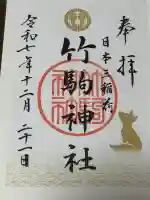 奉拝
日本三稲荷
竹駒神社
令和七年十二月二十一日